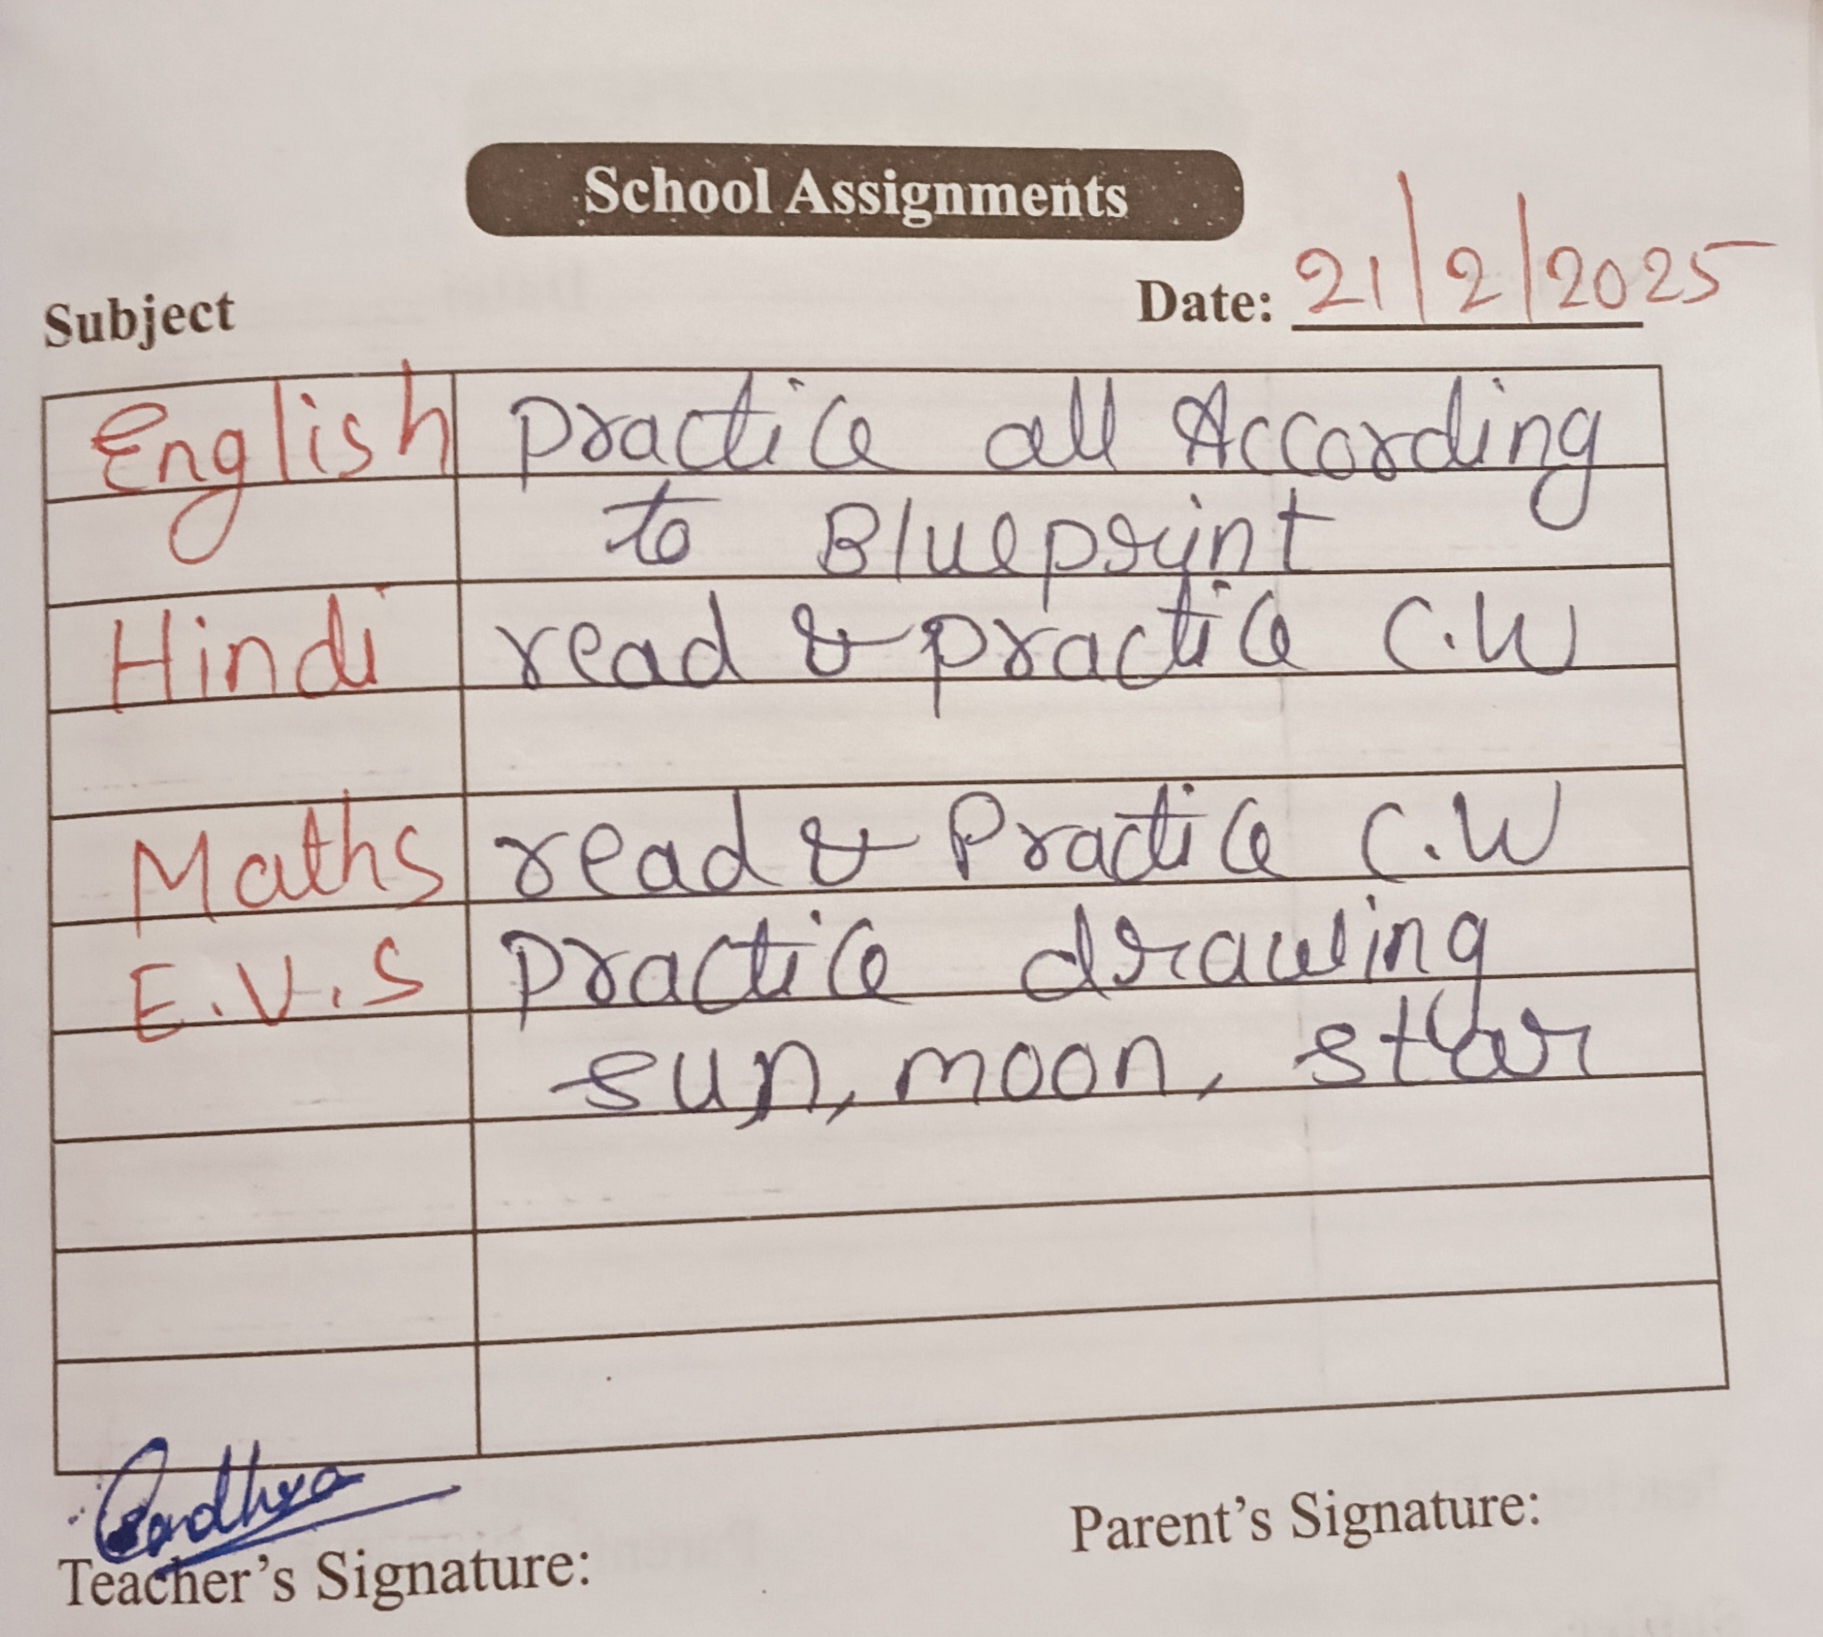 School Assignments
Subject
Date: 21/2/2025
English practice all According
to Blueprint
Hindi read & practice C.W
Maths read & Practice C.W
E.V.S practice drawing
sun, moon, star
Teacher's Signature:
Parent's Signature: